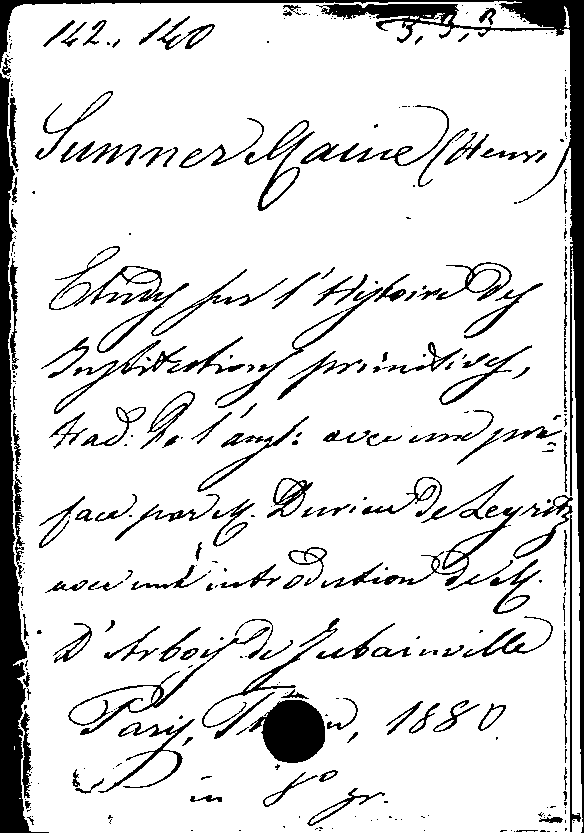 142., 140 3, 3, 3
Sumner Maine (Henri)
Etudes sur l'Histoire des
Institutions primitives,
trad. de l'angl: avec une pré=
face par M. Durieu de Leyritz
avec une introduction de M.
D'Arbois de Jubainville
Paris, 1880.
in 8° gr.